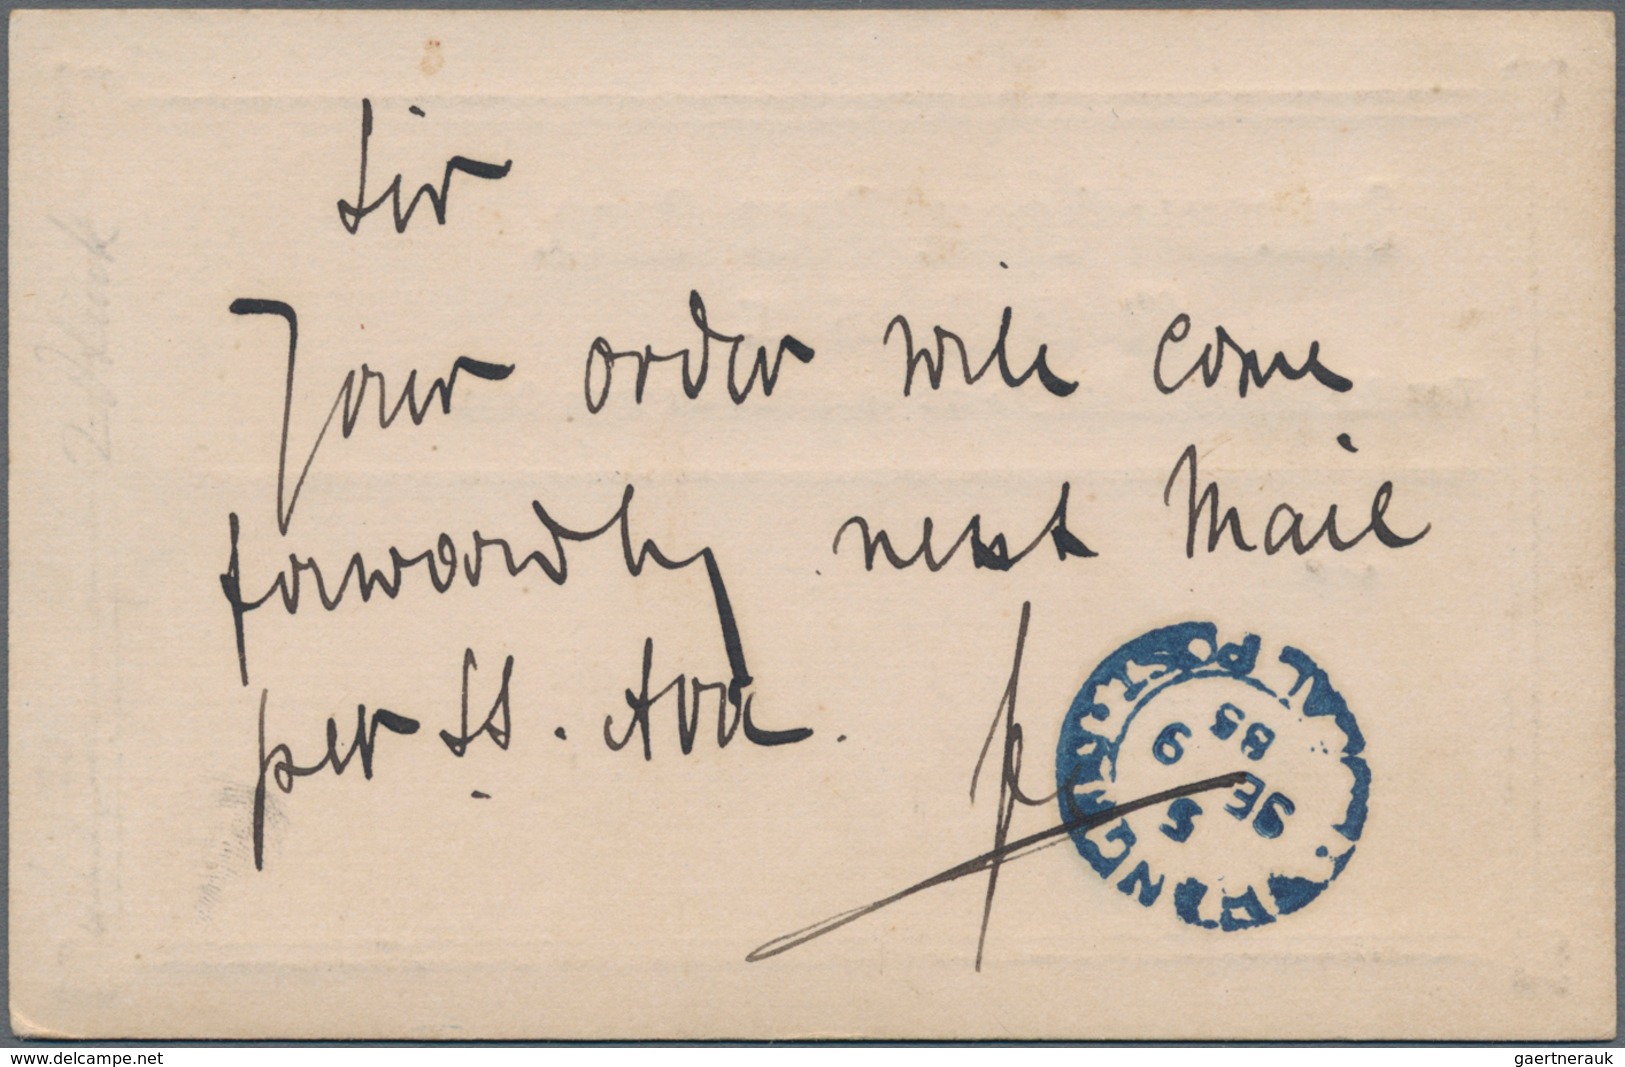 Sir
Your order will come
forwardly next Mail
per SS. Ava.
5
SE
85
9
www.delcampe.net
gaertnerauk